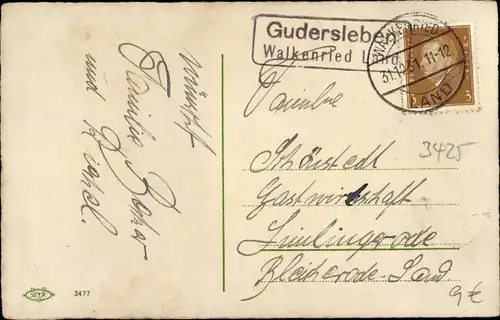 Gudersleben
Walkenried Land
WALKENRIED
31.12.31. 11-12
LAND
3 3
3425
wünscht
Familie
und
Familie
Gastwirtschaft
Bleicherode-Land
9€
3477